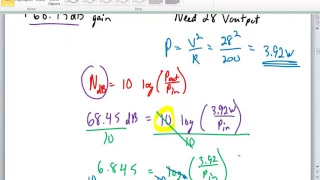 gain Need 28 Voutput
P = V²/R = 28²/200 = 3.92W
NdB = 10 log (Pout/Pin)
68.45 dB/10 = 10 log (3.92W/Pin)/10
6.845 = log (3.92/Pin)